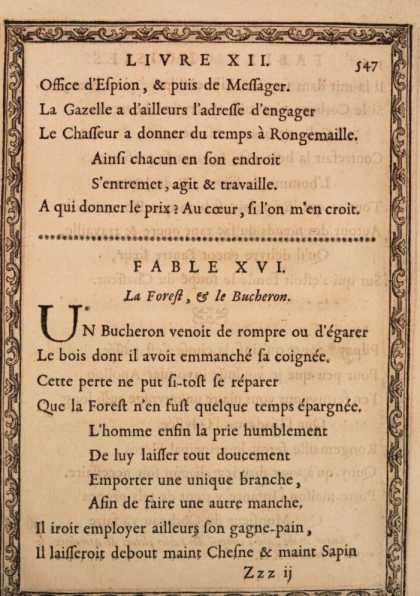 LIVRE XII. 547
Office d'Eſpion, & puis de Meſſager.
La Gazelle a d'ailleurs l'adreſſe d'engager
Le Chaſſeur a donner du temps à Rongemaille.
Ainſi chacun en ſon endroit
S'entremet, agit & travaille.
A qui donner le prix? Au cœur, ſi l'on m'en croit.
FABLE XVI.
La Foreſt, & le Bucheron.
UN Bucheron venoit de rompre ou d'égarer
Le bois dont il avoit emmanché ſa coignée.
Cette perte ne put ſi-toſt ſe réparer
Que la Foreſt n'en fuſt quelque temps épargnée.
L'homme enfin la prie humblement
De luy laiſſer tout doucement
Emporter une unique branche,
Afin de faire une autre manche.
Il iroit employer ailleurs ſon gagne-pain,
Il laiſſeroit debout maint Cheſne & maint Sapin
Zzz ij